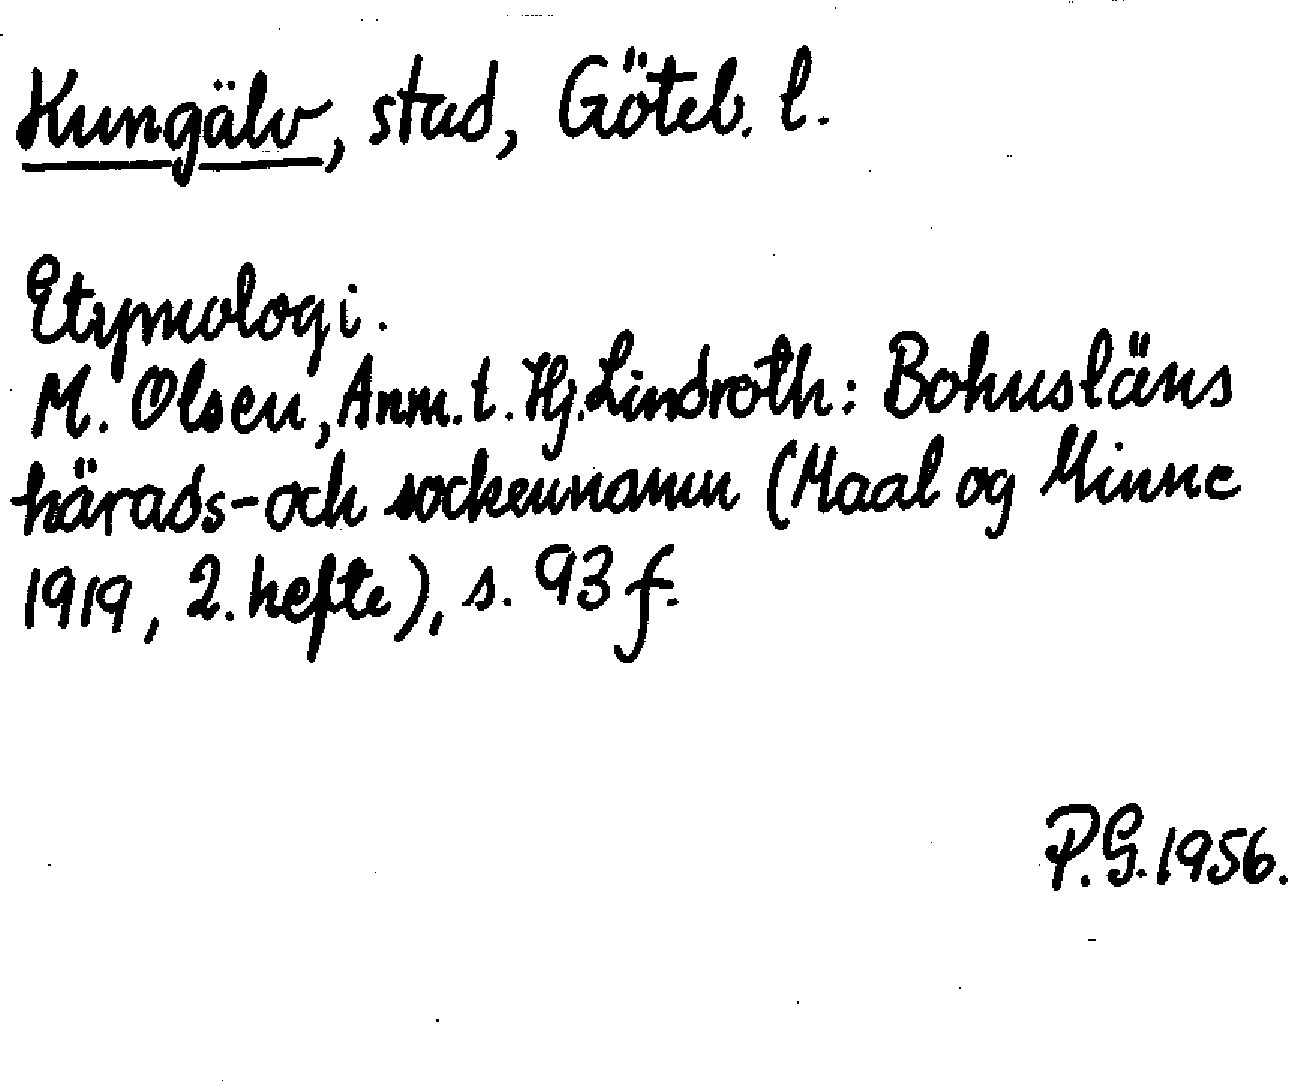 Kungälv, stad, Göteb. l.
Etymologi.
M. Olsen, Anm. t. Hj. Lindroth: Bohusläns
härads- och sockennamn (Maal og Minne
1919, 2. hefte), s. 93 f.
P.G. 1956.